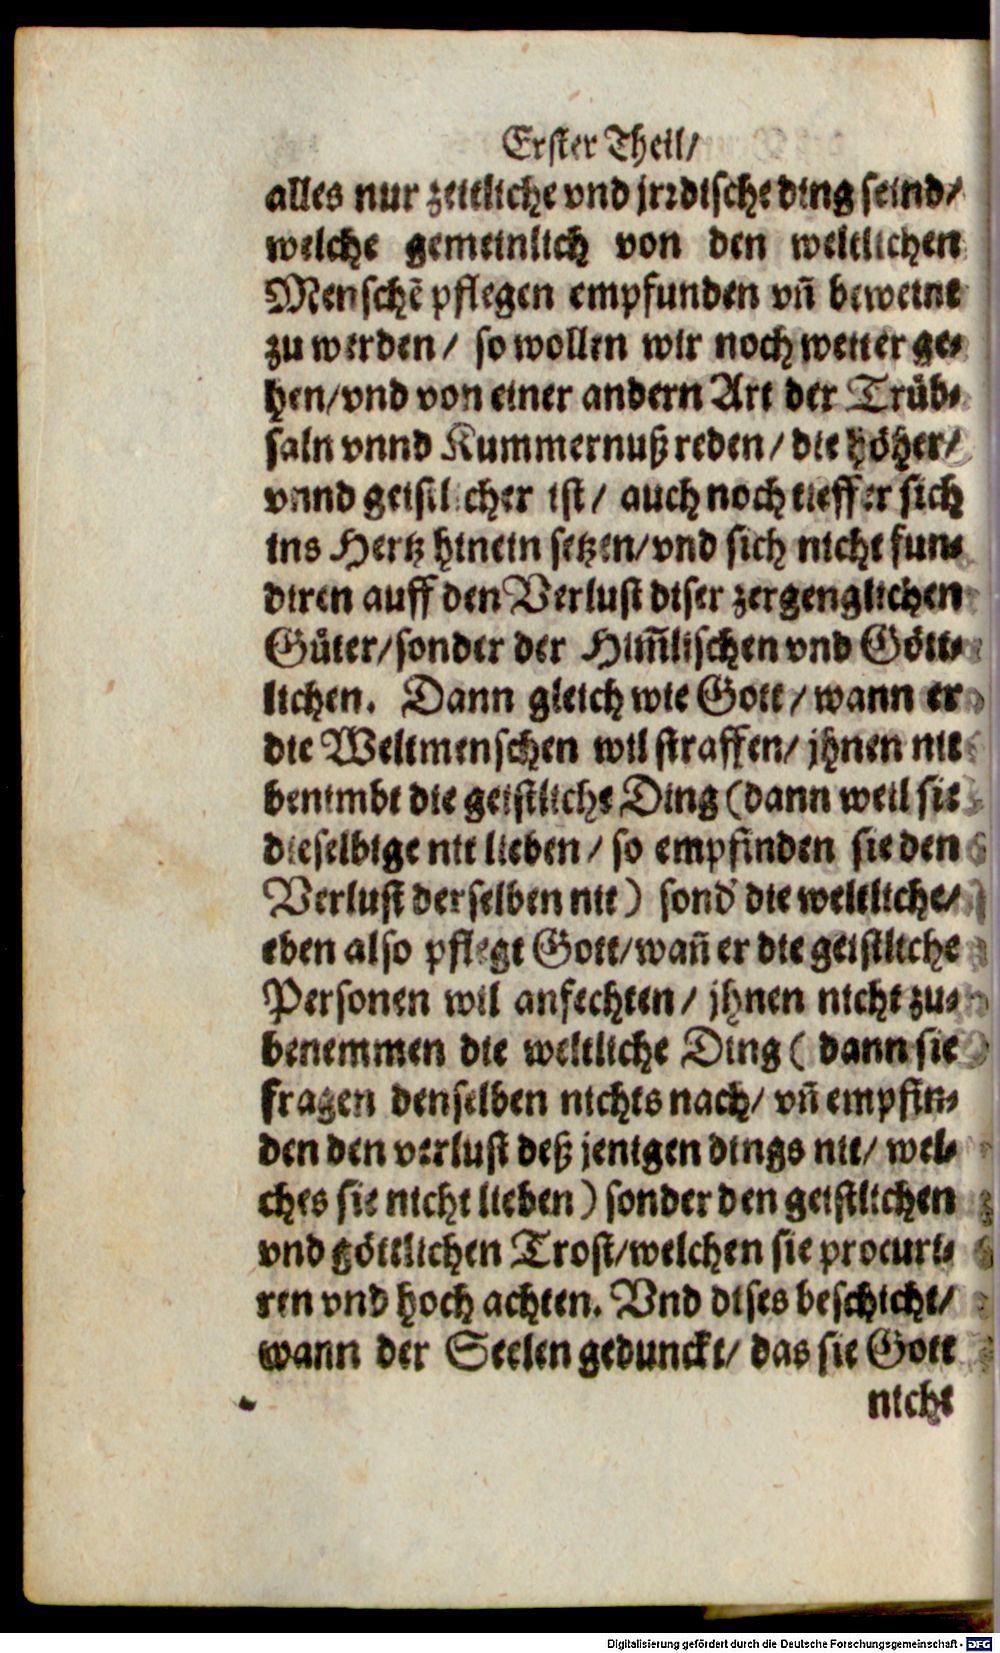 Erster Theil/
alles nur zeitliche vnd jrrdische ding seind/
welche gemeinlich von den weltlichen
Menschẽ pflegen empfunden vñ beweint
zu werden/ so wollen wir noch weiter ge-
hen/vnd von einer andern Art der Trüb-
saln vnnd Kummernuß reden/ die höher/
vnnd geistlicher ist/ auch noch tieffer sich
ins Hertz hinein setzen/vnd sich nicht fun-
diren auff den Verlust diser zergenglichen
Güter/sonder der Him̃lischen vnd Gött-
lichen. Dann gleich wie Gott/ wann er
die Weltmenschen wil straffen/ jhnen nit
benimbt die geistliche Ding (dann weil sie
dieselbige nit lieben/ so empfinden sie den
Verlust derselben nit) sond̕ die weltliche/
eben also pflegt Gott/wañ er die geistliche
Personen wil anfechten/ jhnen nicht zu-
benemmen die weltliche Ding ( dann sie
fragen denselben nichts nach/ vñ empfin-
den den verlust deß jenigen dings nit/ wel-
ches sie nicht lieben) sonder den geistlichen
vnd göttlichen Trost/welchen sie procuri-
ren vnd hoch achten. Vnd dises beschicht/
wann der Seelen gedunckt/ das sie Gott
nicht
Digitalisierung gefördert durch die Deutsche Forschungsgemeinschaft - DFG